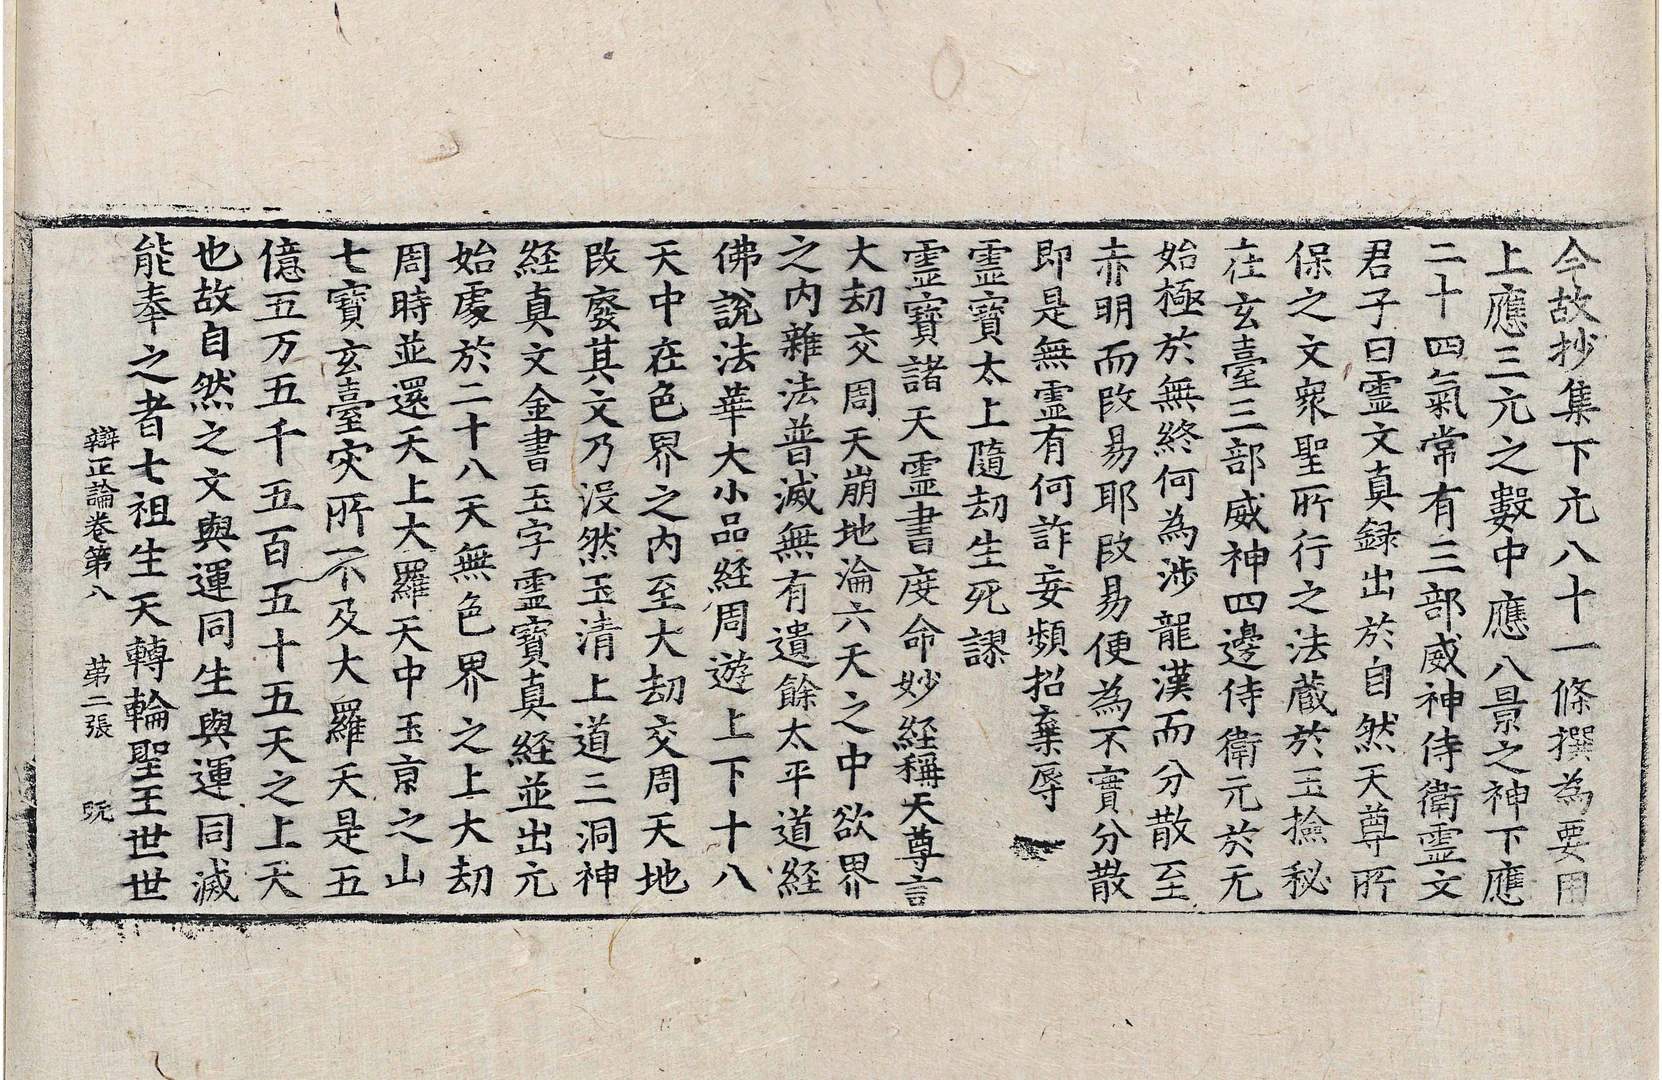 今故抄集下元八十一條撰為要用
上應三元之數中應八景之神下應
二十四氣常有三部威神侍衛霊文
君子曰霊文真録出於自然天尊所
保之文衆聖所行之法蔵於玉撿秘
在玄臺三部威神四邊侍衛元於无
始極於無終何為渉龍漢而分散至
赤明而改易耶改易便為不實分散
即是無霊有何詐妄頻招棄辱
霊寶太上隨劫生死謬
霊寶諸天霊書度命妙経稱天尊言
大劫交周天崩地淪六天之中欲界
之内雜法普滅無有遺餘太平道経
佛說法華大小品経周遊上下十八
天中在色界之内至大劫交周天地
改廢其文乃没然玉清上道三洞神
経真文金書玉字霊寶真経並出元
始處於二十八天無色界之上大劫
周時並還天上大羅天中玉京之山
七寶玄臺灾所不及大羅天是五
億五万五千五百五十五天之上天
也故自然之文與運同生與運同滅
能奉之者七祖生天轉輪聖王世世
辯正論卷第八 第二張